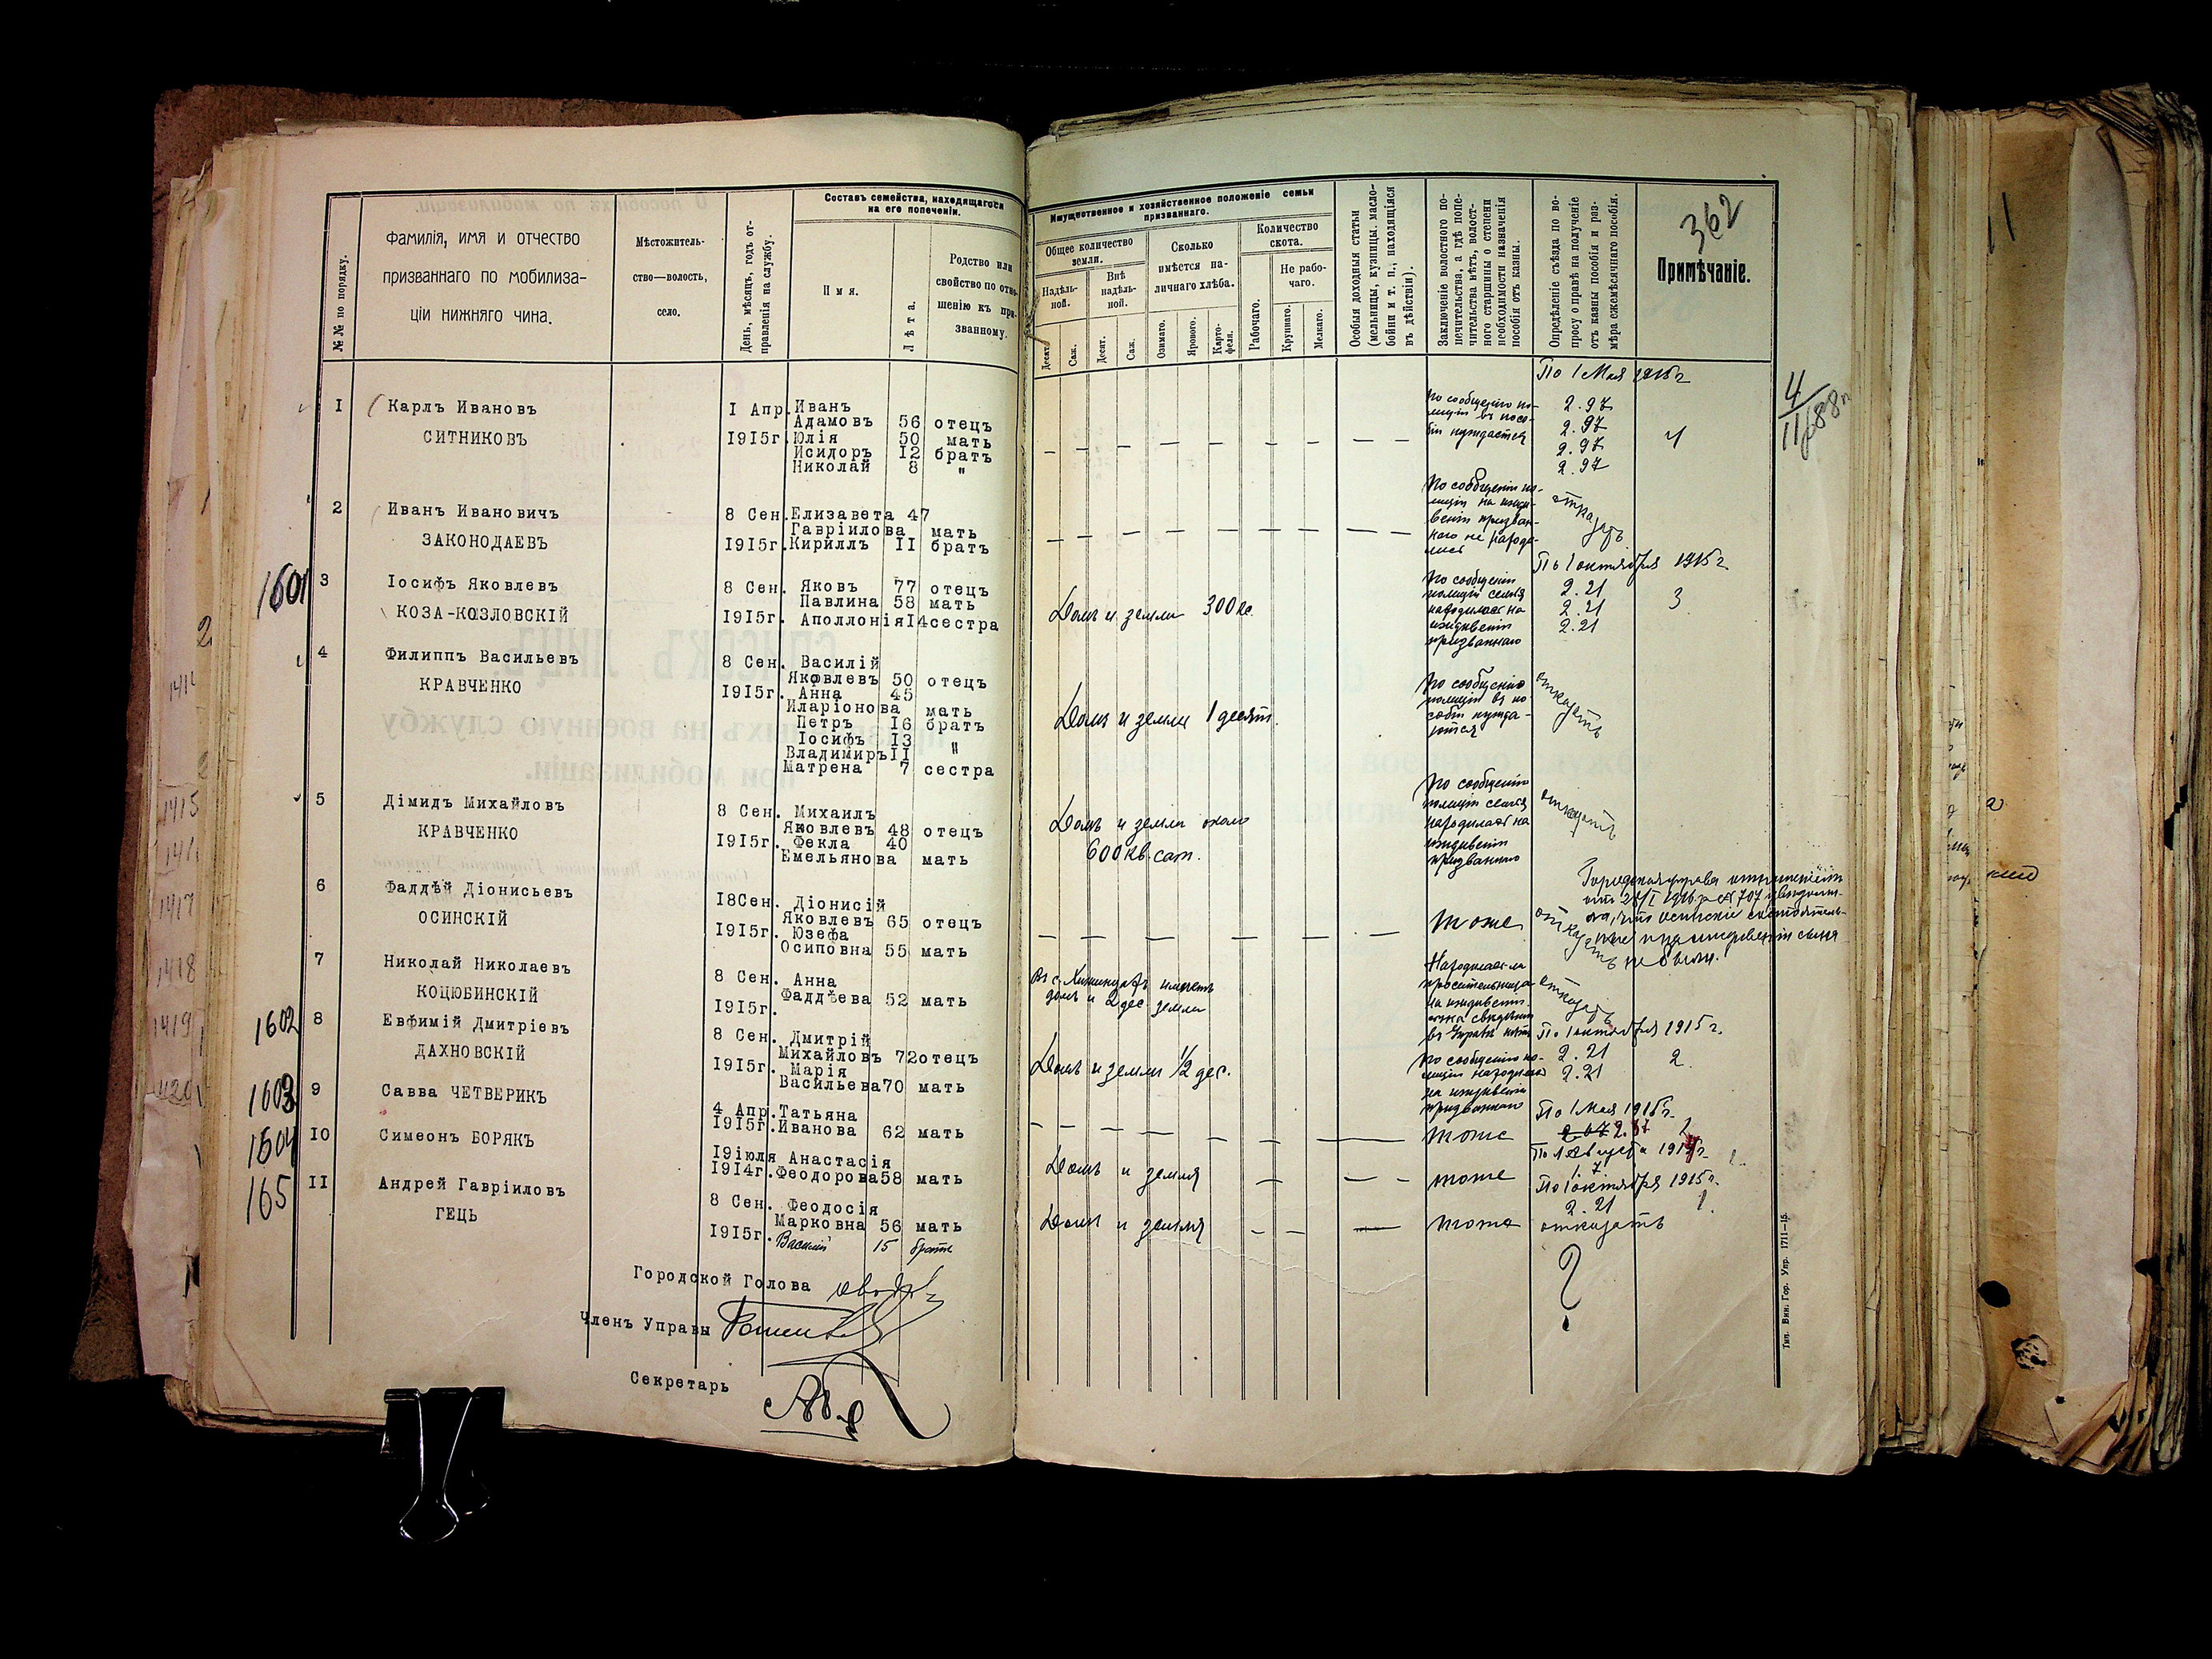 362
№№ по порядку.
Фамилія, имя и отчество
призваннаго по мобилиза-
ціи нижняго чина.
Мѣстожитель-
ство—волость,
село.
День, мѣсяцъ, годъ от-
правленія на службу.
Составъ семейства, находящагося
на его попеченіи.
Имя.
Лѣта.
Родство или
свойство по отно-
шенію къ при-
званному.
Имущественное и хозяйственное положеніе семьи
призваннаго.
Общее количество
земли.
Надѣль-
ной.
Внѣ
надѣль-
ной.
Десят.
Саж.
Десят.
Саж.
Сколько
имѣется на-
личнаго хлѣба.
Озимаго.
Ярового.
Карто-
феля.
Количество
скота.
Рабочаго.
Не рабо-
чаго.
Крупнаго.
Мелкаго.
Особыя доходныя статьи
(мельницы, кузницы, масло-
бойни и т. п., находящіяся
въ дѣйствіи).
Заключеніе волостного по-
печительства, а гдѣ попе-
чительства нѣтъ, волост-
ного старшины о степени
необходимости назначенія
пособія отъ казны.
Опредѣленіе съѣзда по во-
просу о правѣ на полученіе
отъ казны пособія и раз-
мѣра ежемѣсячнаго пособія.
Примѣчаніе.
По 1 Мая 1915 г
I Карлъ Ивановъ
СИТНИКОВЪ
I Апр. Иванъ
Адамовъ 56 отецъ
1915г. Юлія 50 мать
Исидоръ I2 братъ
Николай 8 "
По сообщенію по-
лиціи въ посо-
біи нуждается
2.97
2.97
2.97
2.97
4
4
2 Иванъ Ивановичъ
ЗАКОНОДАЕВЪ
8 Сен. Елизавета 47
Гавріилова мать
1915г. Кириллъ II братъ
По сообщенію по-
лиціи на ижди-
веніи призван-
наго не находи-
лись
отказать
По 1 октября 1915 г
1601
3 Іосифъ Яковлевъ
КОЗА-КОЗЛОВСКІЙ
8 Сен. Яковъ 77 отецъ
Павлина 58 мать
1915г. Аполлонія I4 сестра
Домъ и земли 300 с.
По сообщенію
полиціи семья
находилась на
иждивеніи
призваннаго
2.21
2.21
2.21
3
4 Филиппъ Васильевъ
КРАВЧЕНКО
8 Сен. Василій
Яковлевъ 50 отецъ
1915г. Анна 45
Иларіонова мать
Петръ I6 братъ
Іосифъ I3 "
Владимиръ II
Матрена 7 сестра
Домъ и земли 1 десят.
По сообщенію
полиціи въ по-
собіи нужда-
ется
отказать
5 Дімидъ Михайловъ
КРАВЧЕНКО
8 Сен. Михаилъ
Яковлевъ 48 отецъ
1915г. Фекла 40
Емельянова мать
Домъ и земли около
600 кв. саж.
По сообщенію
полиціи семья
находилась на
иждивеніи
призваннаго
отказать
6 Фаддѣй Діонисьевъ
ОСИНСКІЙ
18Сен. Діонисій
Яковлевъ 65 отецъ
1915г. Юзефа
Осиповна 55 мать
тоже
отказать
7 Николай Николаевъ
КОЦЮБИНСКІЙ
8 Сен. Анна
Фаддѣева 52 мать
1915г.
домъ и 2 дес. земли
отказать
По 1 октября 1915 г.
1602
8 Евфимій Дмитріевъ
ДАХНОВСКІЙ
8 Сен. Дмитрій
Михайловъ 72 отецъ
1915г. Марія
Васильева 70 мать
Домъ и земли 1/2 дес.
По сообщенію по-
лиціи находился
на иждивеніи
призваннаго
2.21
2.21
2.
По 1 Мая 1915 г.
1603
9 Савва ЧЕТВЕРИКЪ
4 Апр. Татьяна
1915г. Иванова 62 мать
тоже
1
1604
10 Симеонъ БОРЯКЪ
19 іюля Анастасія
1914г. Феодорова 58 мать
Домъ и земля
тоже
По 1 октября 1915 г.
2.21
1.
165
II Андрей Гавріиловъ
ГЕЦЬ
8 Сен. Феодосія
Марковна 56 мать
1915г. Василій 15 братъ
Домъ и земля
тоже
отказать
?
Городской Голова
Членъ Управы
Секретарь
Тип. Вин. Гор. Упр. 1711—15.